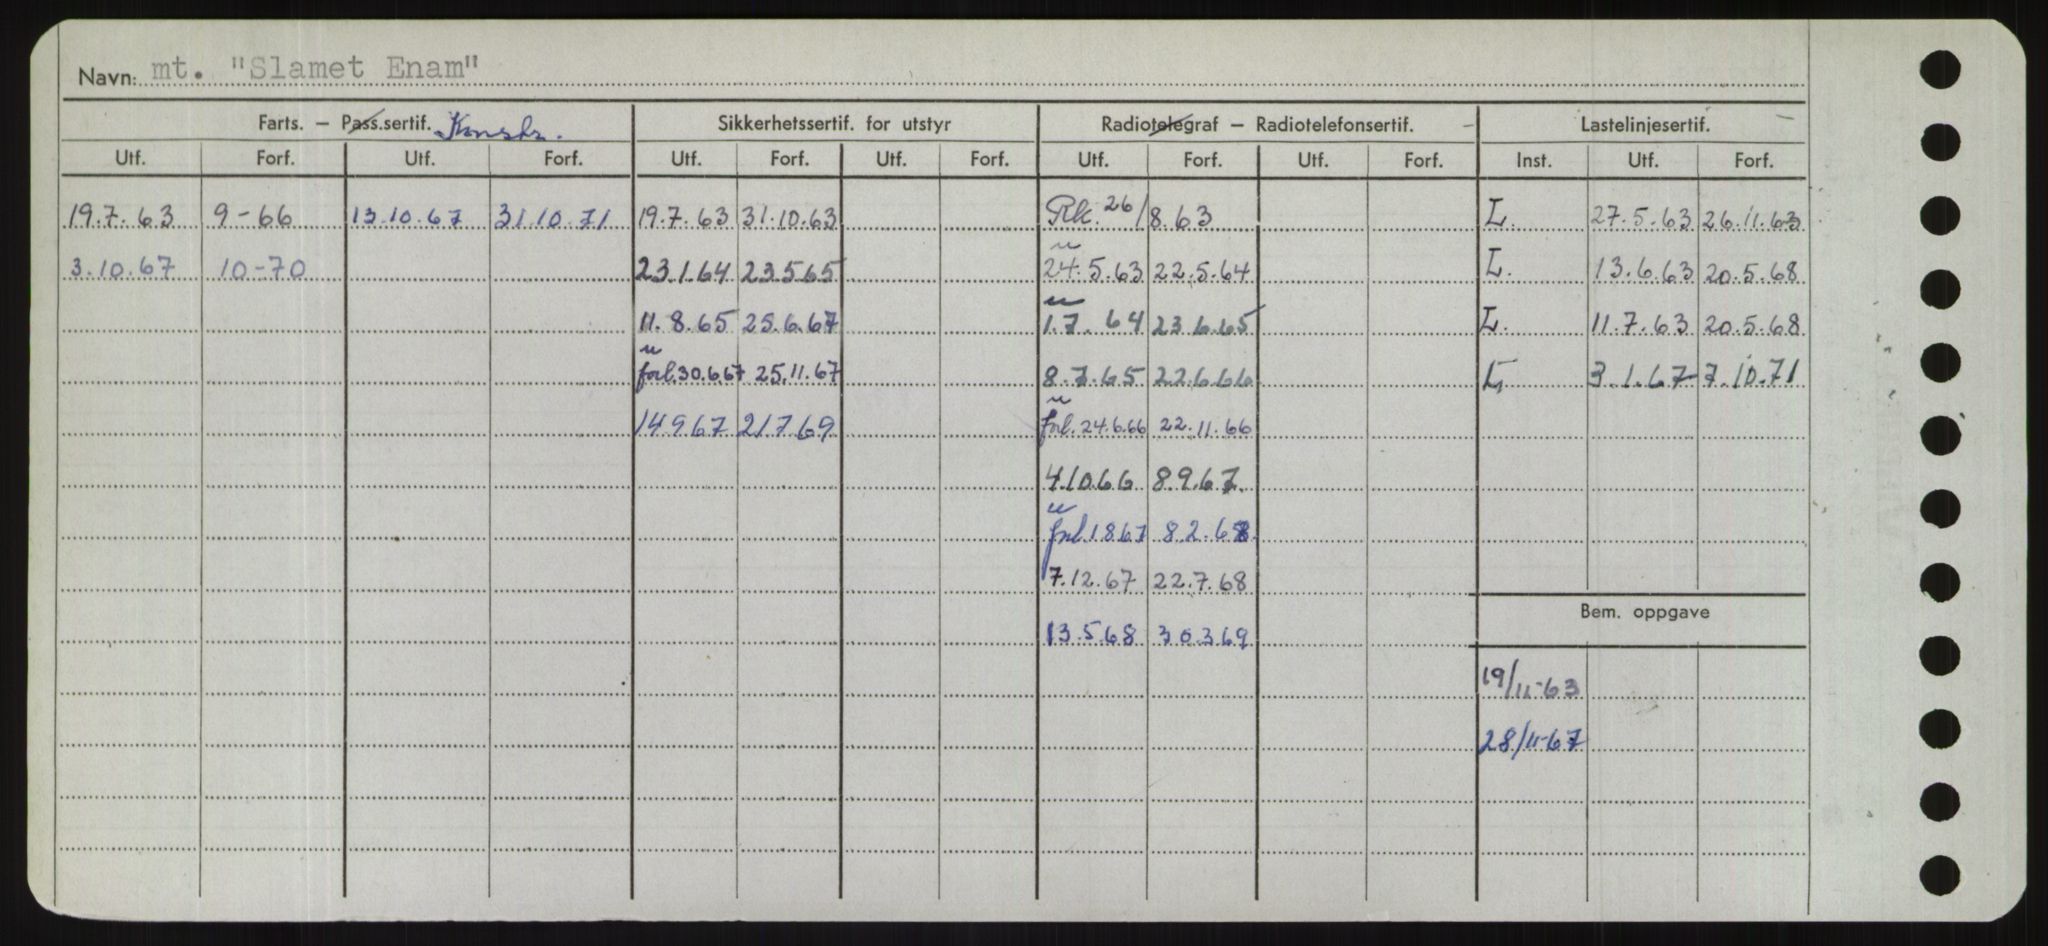 Navn: mt. "Slamet Enam"
Farts. – Pass.sertif. Konstr. Sikkerhetssertif. for utstyr Radiotelegraf – Radiotelefonsertif. – Lastelinjesertif.
Utf. Forf. Utf. Forf. Utf. Forf. Utf. Forf. Utf. Forf. Utf. Forf. Inst. Utf. Forf.
19.7.63 9-66 13.10.67 31.10.71 19.7.63 31.10.63 Rk. 26/8.63 L. 27.5.63 26.11.63
3.10.67 10-70 23.1.64 23.5.65 24.5.63 22.5.64 L. 13.6.63 20.5.68
11.8.65 25.6.67 1.7.64 23.6.65 L. 11.7.63 20.5.68
forl.30.6.67 25.11.67 8.7.65 22.6.66 L. 3.1.67 7.10.71
14.9.67 21.7.69 forl.24.6.66 22.11.66
4.10.66 8.9.67.
forl.1.8.67 8.2.68
7.12.67 22.7.68
Bem. oppgave
13.5.68 30.3.69
19/11-63
28/11-67